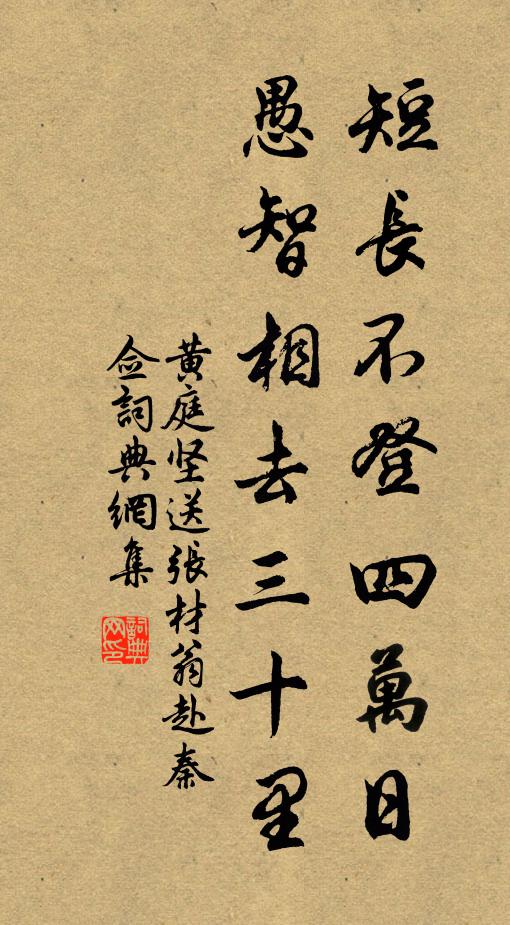 短長不登四萬日
愚智相去三十里
黄庭坚送張材翁赴秦
佥詞典網集
詞典網印